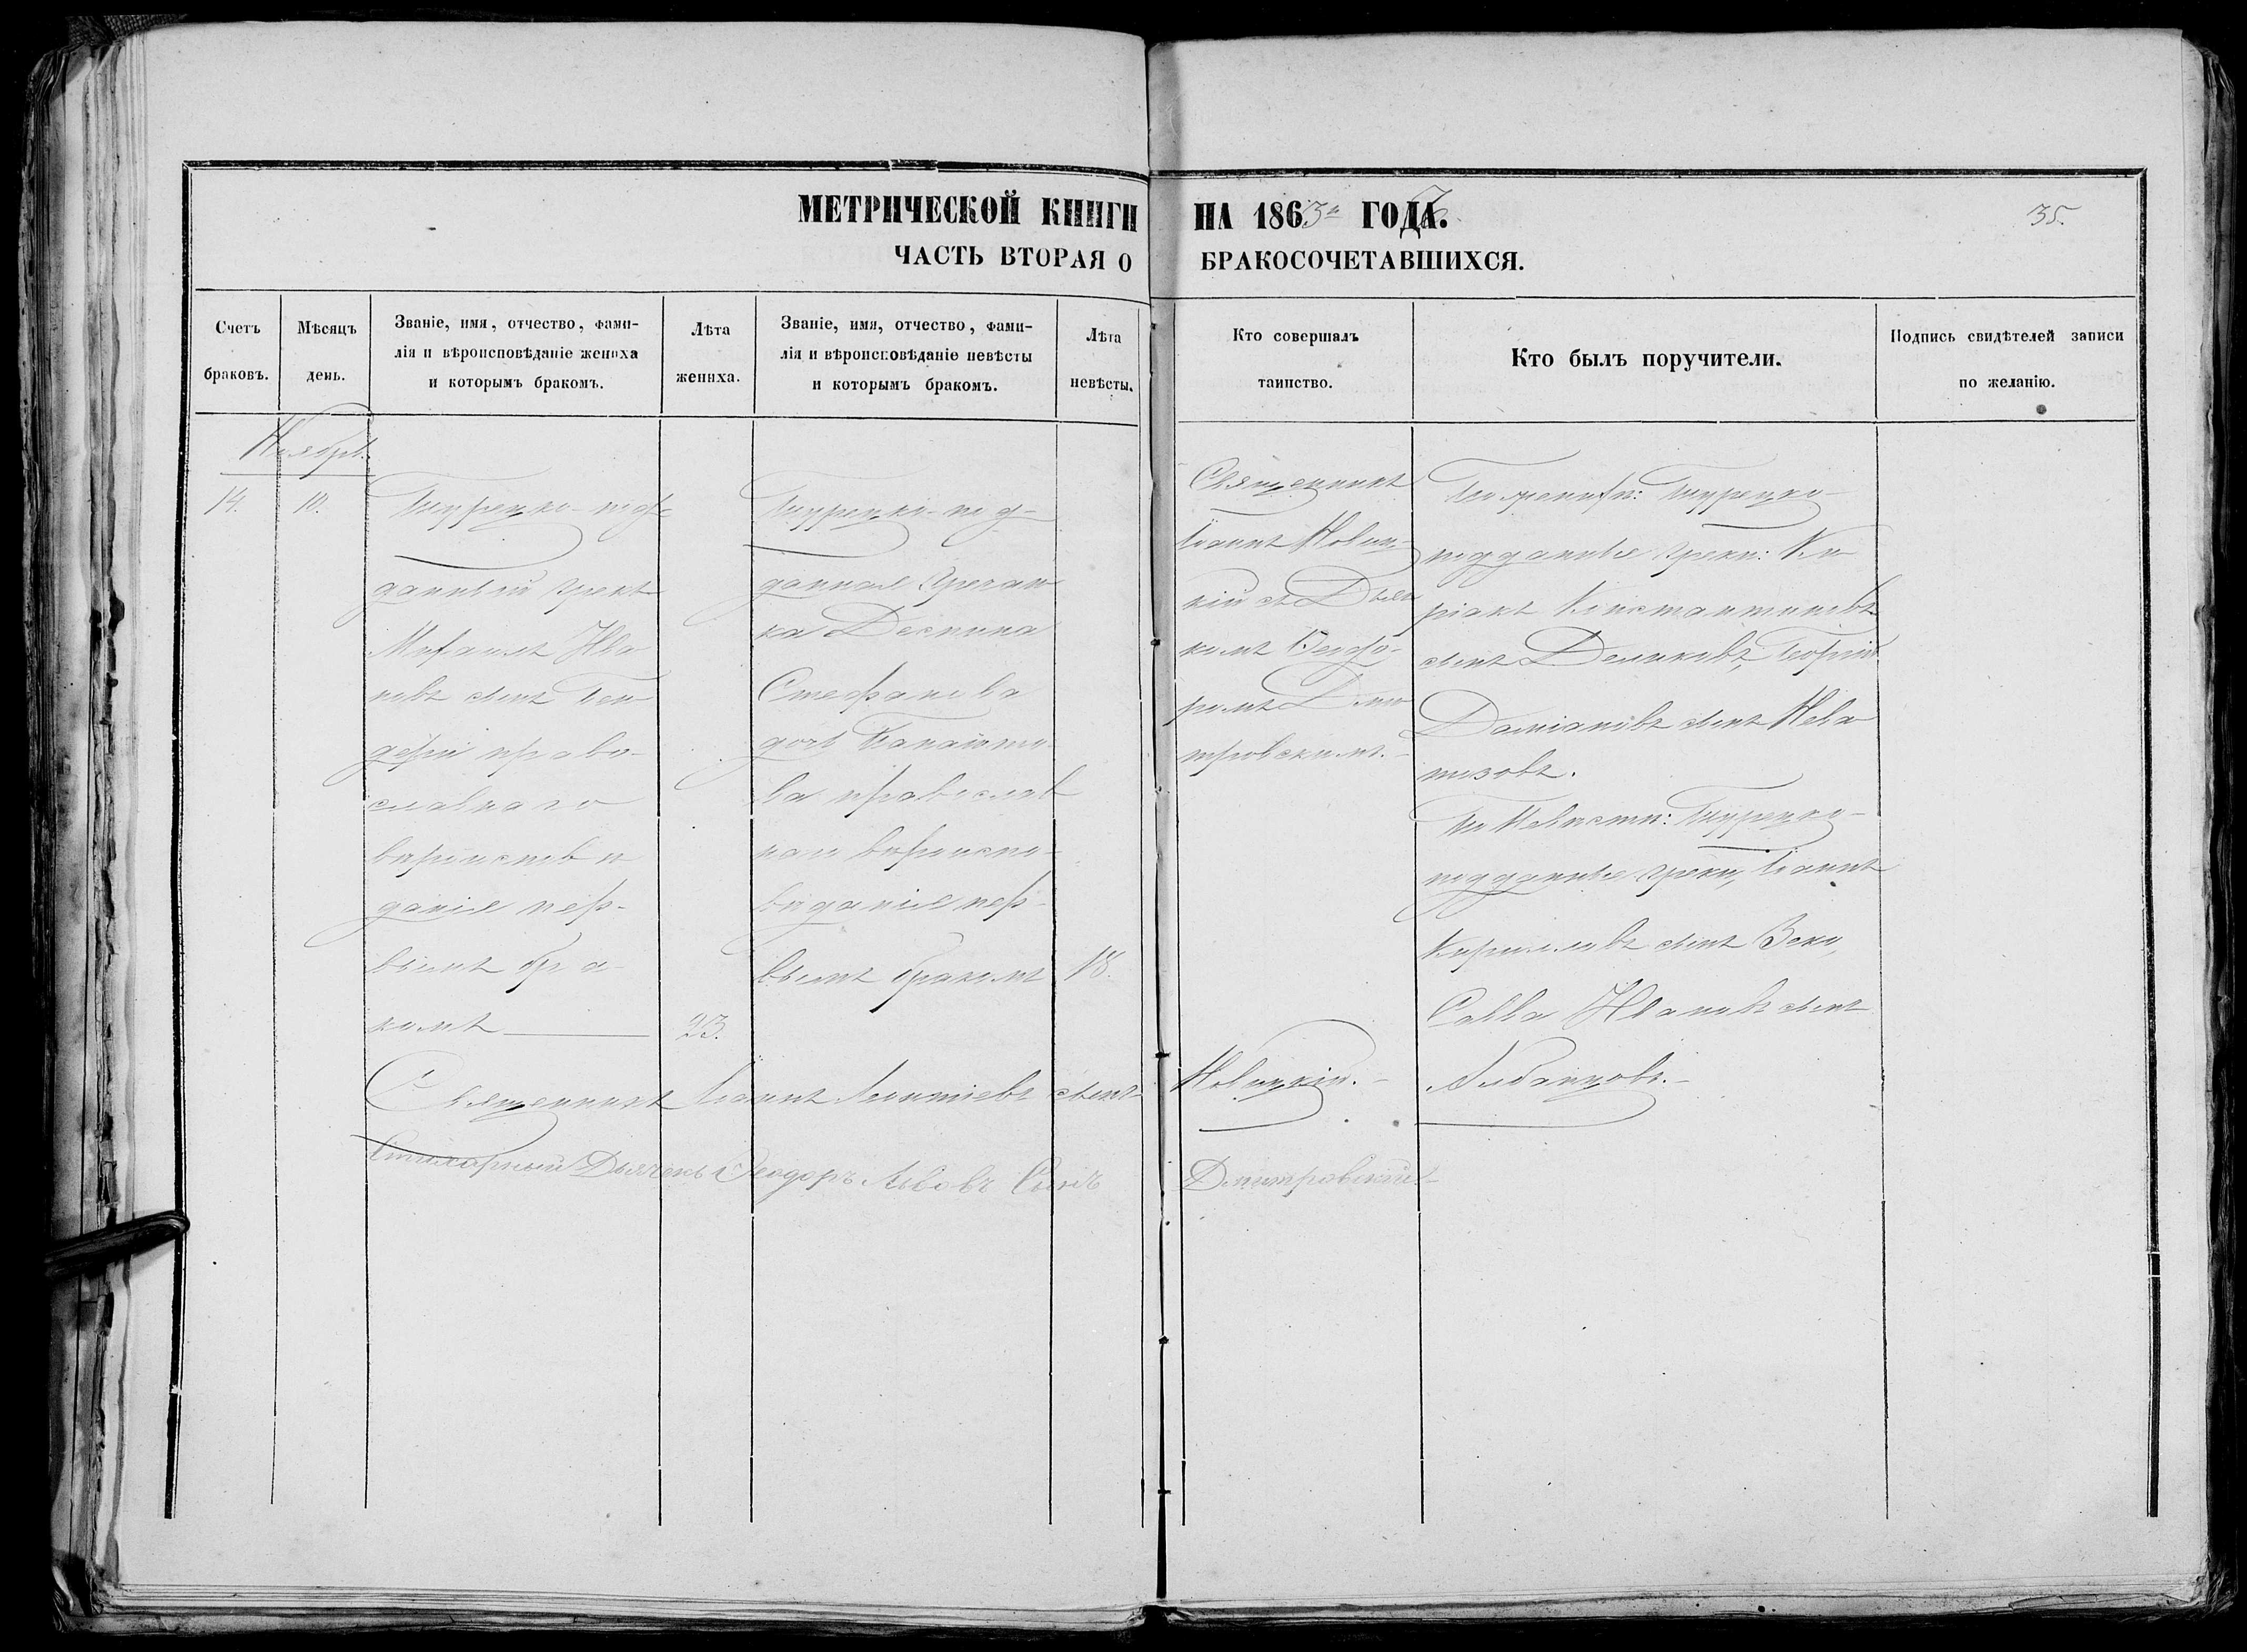 МЕТРИЧЕСКОЙ КНИГИ НА 1863го ГОДА.
35.
ЧАСТЬ ВТОРАЯ О БРАКОСОЧЕТАВШИХСЯ.
Счетъ браковъ.
Мѣсяцъ день.
Званіе, имя, отчество, фами-
лія и вѣроисповѣданіе жениха
и которымъ бракомъ.
Лѣта
жениха.
Званіе, имя, отчество, фами-
лія и вѣроисповѣданіе невѣсты
и которымъ бракомъ.
Лѣта
невѣсты.
Кто совершалъ
таинство.
Кто былъ поручители.
Подпись свидѣтелей записи
по желанію.
Ноябрь.
14.
10.
Турецко-под-
данный грекъ
Михаилъ Ива
новъ сынъ
православнаго
вѣроисповѣ
данія пер-
вымъ бра-
комъ
23.
Турецко-под-
данная Гречан
ка Деспина
Стефанова
дочь
православ
наго вѣроиспо-
вѣданія пер-
вымъ бракомъ
18.
Священникъ
Іоаннъ Новиц-
кій съ Дьяч
комъ Ѳеодо-
ромъ Дми
тровскимъ.
По женихѣ: Турецко-
подданные греки: Ки
ріакъ Константиновъ
сынъ Георгій
Даміановъ сынъ
По Невѣстѣ: Турецко-
подданные греки, Іоаннъ
Кирилловъ сынъ
Савва Ивановъ сынъ
Священникъ Іоаннъ Леонтіевъ сынъ Новицкій.
Стихарный Дьячекъ Ѳеодоръ Львовъ Сынъ Дмитровскій